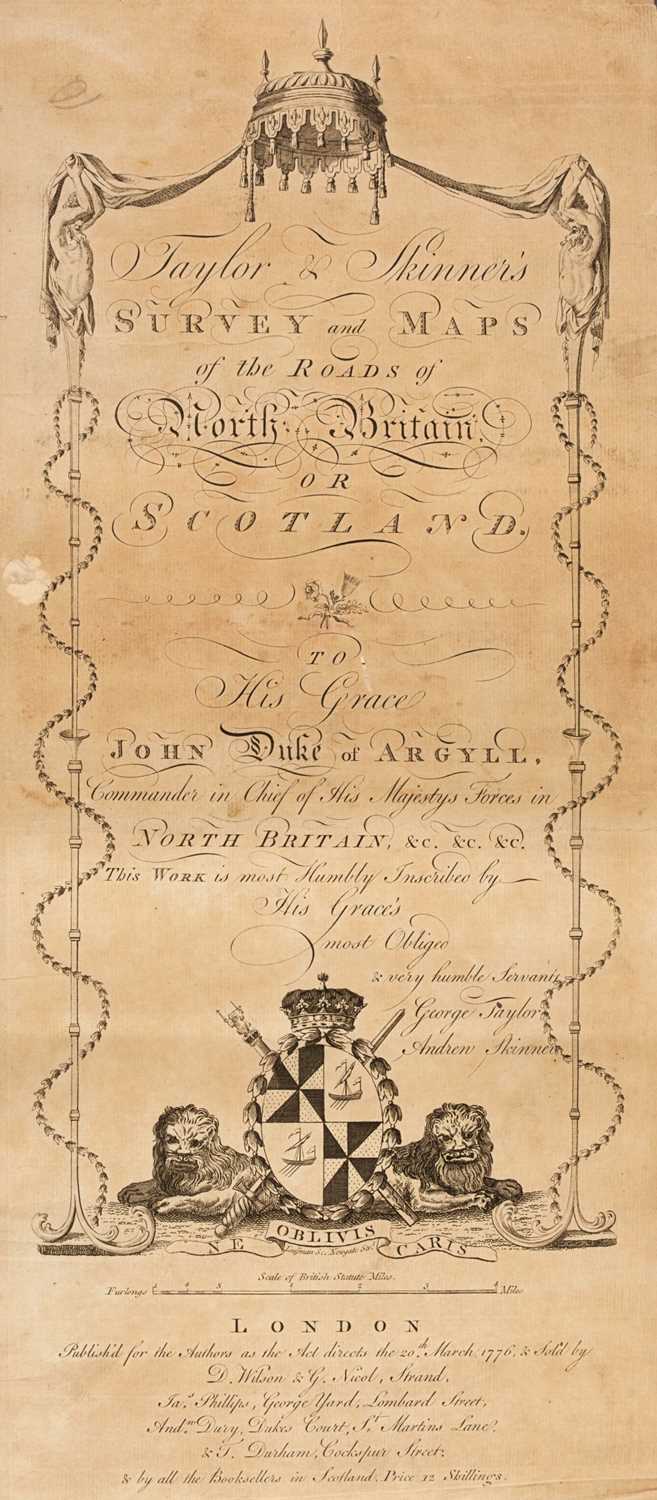 Taylor & Skinner's
SURVEY and MAPS
of the ROADS of
North Britain,
OR
SCOTLAND.
TO
His Grace
JOHN Duke of ARGYLL,
Commander in Chief of His Majestys Forces in
NORTH BRITAIN, &c. &c. &c.
This WORK is most Humbly Inscribed by
His Grace's
most Obliged
& very humble Servants
George Taylor
Andrew Skinner
NE OBLIVIS CARIS
Sc. Newgate Str.
Scale of British Statute Miles.
Furlongs 1 2 3 4 Miles
LONDON
Publish'd for the Authors as the Act directs the 20.th March 1776, & Sold by
D. Wilson & G. Nicol, Strand,
Ja.s Phillips, George Yard, Lombard Street,
And.w Dury, Dukes Court, S.t Martins Lane,
& T. Durham, Cockspur Street;
& by all the Booksellers in Scotland. Price 12 Shillings.